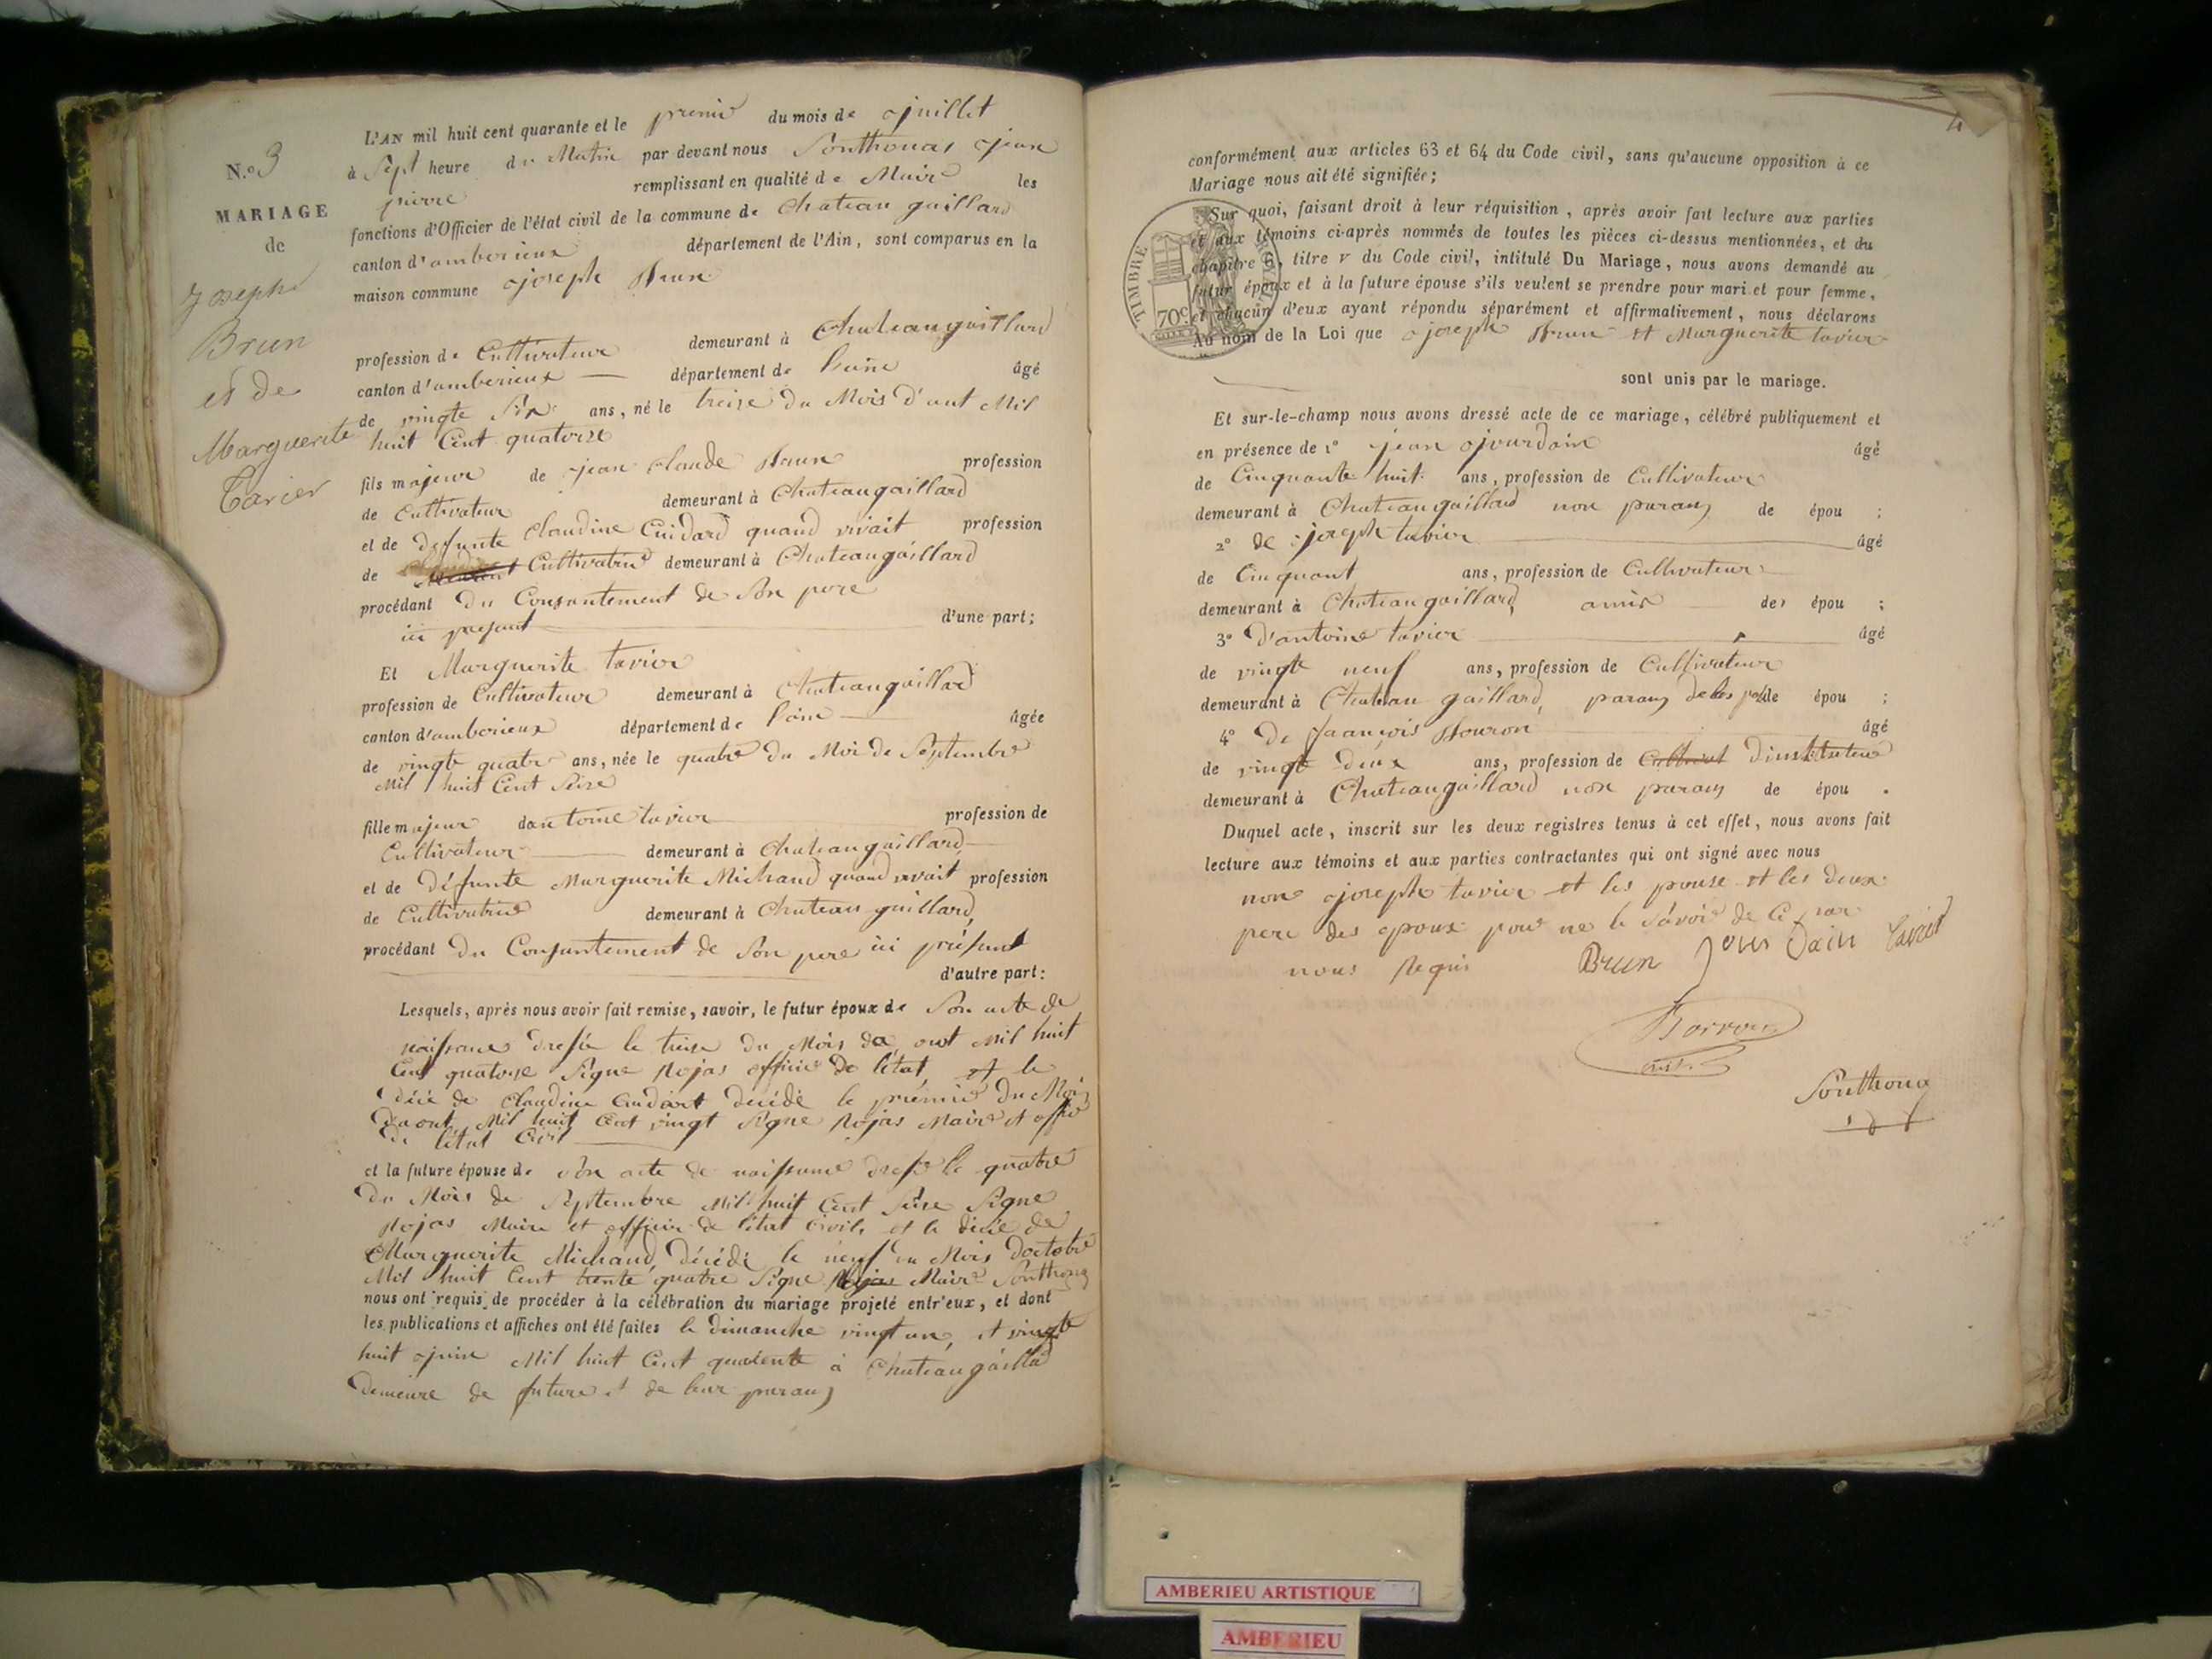 N.º 3
MARIAGE
de
Joseph
Brun
et de
Marguerite
Tavier
L'AN mil huit cent quarante et le premier du mois de juillet
à Sept heure du Matin par devant nous Ponthouas jean
pierre remplissant en qualité de Maire les
fonctions d'Officier de l'état civil de la commune de Chateau gaillard
canton d'amberieux département de l'Ain, sont comparus en la
maison commune joseph Brun
profession de Cultivateur demeurant à Chateaugaillard
canton d'amberieux département de l'ain âgé
de vingte Six ans, né le treize du Mois d'aut Mil
huit Cent quatorze
fils majeur de jean Claude Brun profession
de Cultivateur demeurant à Chateaugaillard
et de defunte Claudine Cuidard quand vivait profession
de Cultivatrice demeurant à Chateaugaillard
procédant du Consantement de Son pere
ici present d'une part;
Et Marguerite tavier
profession de Cultivateur demeurant à Chateaugaillard
canton d'amberieux département de l'ain âgée
de vingte quatre ans, née le quatre du Moi de Septembre
Mil huit Cent Seize
fille majeur dantoine tavier profession de
Cultivateur demeurant à Chateaugaillard
et de défunte Marguerite Michaud quand vivait profession
de Cultivatrice demeurant à Chateau gaillard,
procédant du Consantement de Son pere ici présent
d'autre part:
Lesquels, après nous avoir fait remise, savoir, le futur époux de Son acte de
naissance dressé le treize du Mois da out Mil huit
Cent quatorze Signe Rojas officier de l'état et le
décé de Claudine Cuidart decédé le prémier du Moi
da out Mil huit Cent vingt Signe Rojas Maire et offié
de l'état Civil
et la future épouse de Son acte de naissance dressé le quatre
du Mois de Septembre Mil huit Cent Seize Signe
Rojas Maire et officier de l'état Civil, et le décé de
Marguerite Michaud, décédé le neuf du Mois doctobre
Mil huit Cent trente quatre Signe Maire Ponthouas
nous ont requis de procéder à la célébration du mariage projeté entr'eux, et dont
les publications et affiches ont été faites le dimanche vingt un, et vingte
huit juin Mil huit Cent quarente à Chateaugaillard
demeure de future et de leur parans
4
conformément aux articles 63 et 64 du Code civil, sans qu'aucune opposition à ce
Mariage nous ait été signifiée;
TIMBRE ROYAL
70c
Sur quoi, faisant droit à leur réquisition, après avoir fait lecture aux parties
et aux témoins ci-après nommés de toutes les pièces ci-dessus mentionnées, et du
chapitre 6, titre v du Code civil, intitulé Du Mariage, nous avons demandé au
futur époux et à la future épouse s'ils veulent se prendre pour mari et pour femme,
et chacun d'eux ayant répondu séparément et affirmativement, nous déclarons
Au nom de la Loi que joseph Brun et Marguerite tavier
sont unis par le mariage.
Et sur-le-champ nous avons dressé acte de ce mariage, célébré publiquement et
en présence de 1º jean jourdain âgé
de Cinquante huit ans, profession de Cultivateur
demeurant à Chateaugaillard non parans de épou ;
2º de joseph tavier âgé
de Cinquant ans, profession de Cultivateur
demeurant à Chateaugaillard, amis des épou ;
3º d'antoine tavier âgé
de vingte neuf ans, profession de Cultivateur
demeurant à Chateau gaillard, parans de épou ;
4º de françois Borron âgé
de vingte deux ans, profession de dinstituteur
demeurant à Chateaugaillard non parans de épou .
Duquel acte, inscrit sur les deux registres tenus à cet effet, nous avons fait
lecture aux témoins et aux parties contractantes qui ont signé avec nous
non joseph tavier et les pouse et les deux
pere des epoux pour ne le Savoir de Ce par
nous Requis Brun Jourdain tavier
Borron
Ponthouas
AMBERIEU ARTISTIQUE
AMBERIEU